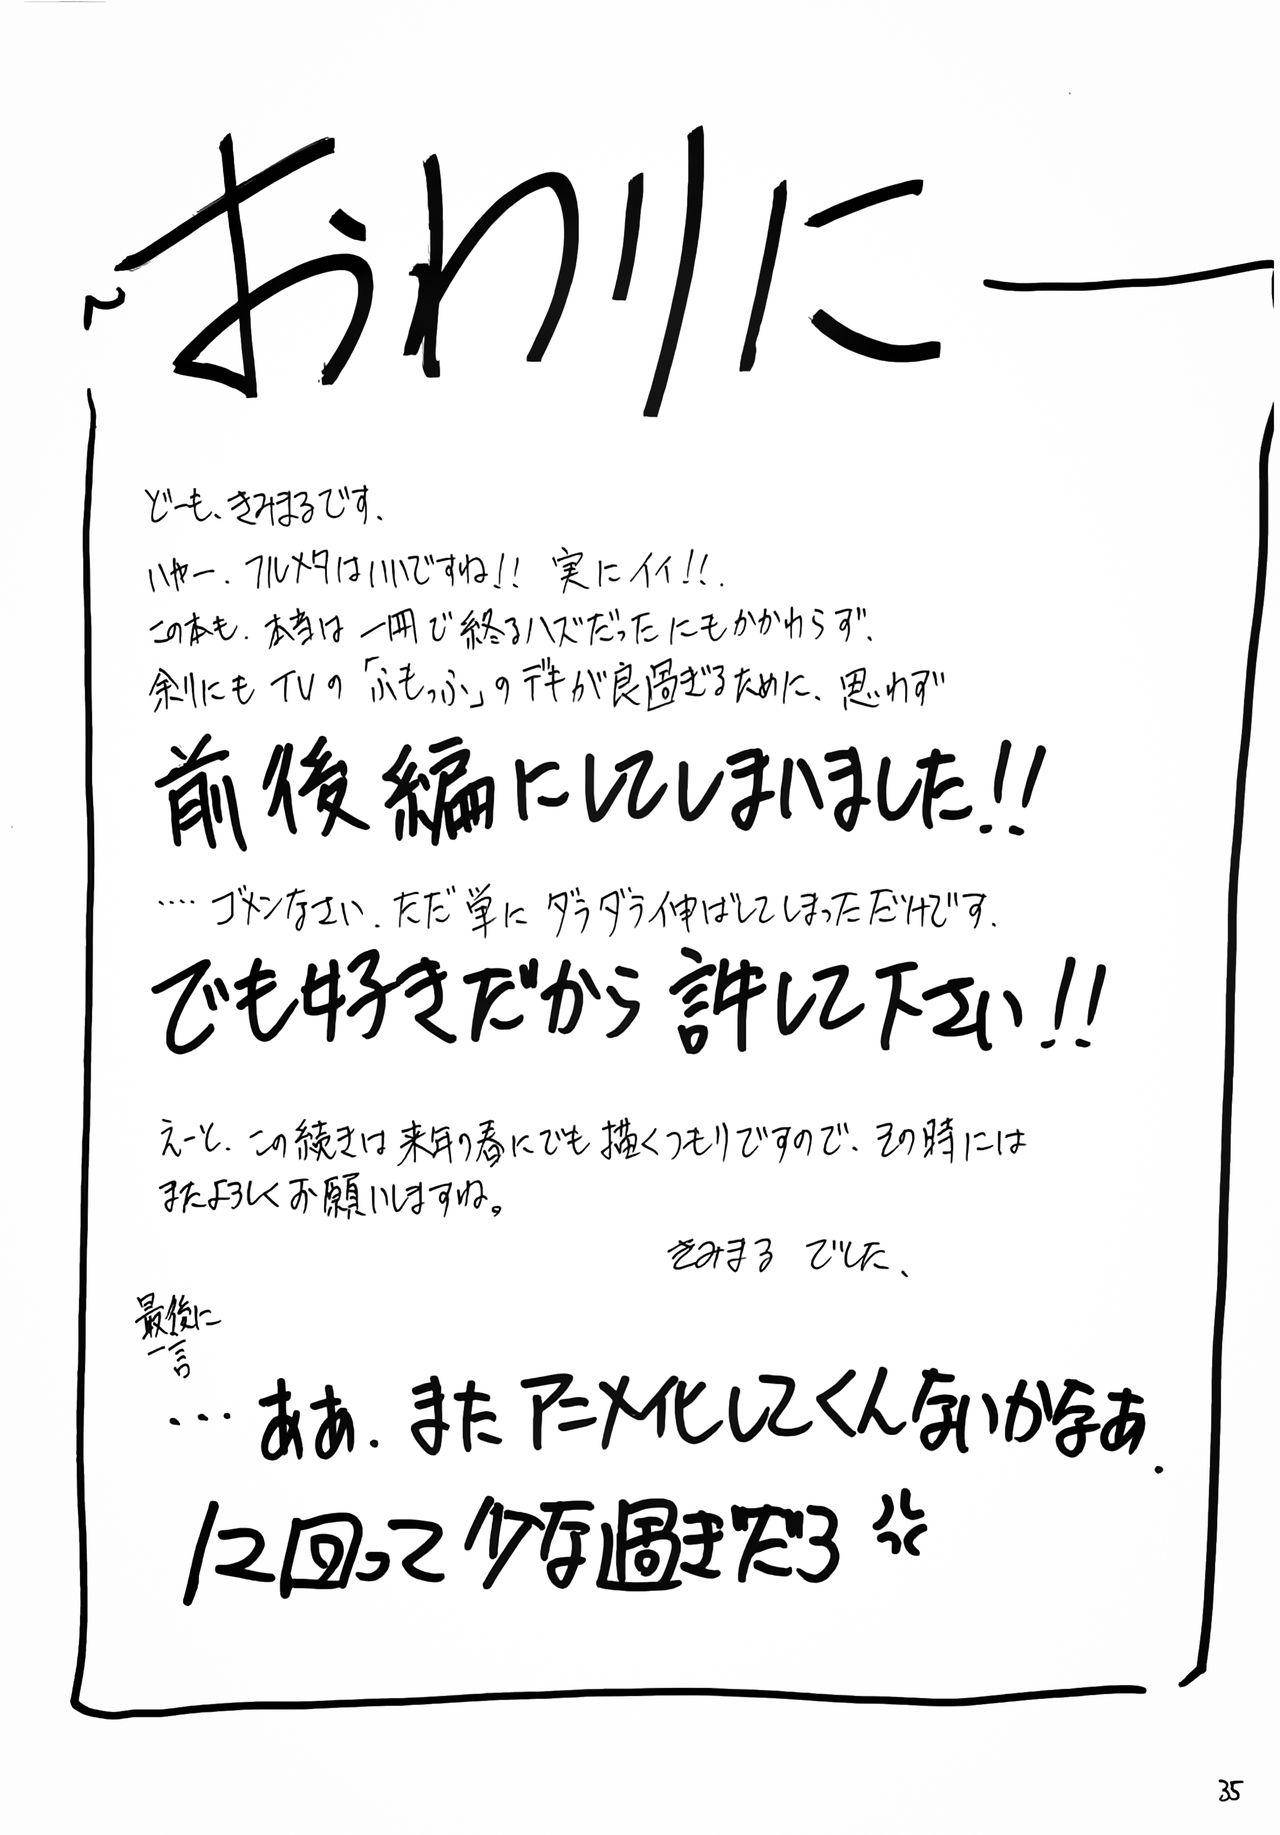 おわりに
どーも、きみまるです、
いやー、フルメタはいいですね!! 実にイイ!!、
この本も、本当は一冊で終るハズだったにもかかわらず、
余りにもTVの「ふもっふ」のデキが良過ぎるために、思わず
前後編にしてしまいました!!
‥‥ゴメンなさい、ただ単にダラダラ伸ばしてしまっただけです、
でも好きだから許して下さい!!
えーと、この続きは来年の春にでも描くつもりですので、その時には
またよろしくお願いしますね。
きみまる でした、
最後に
一言
…ああ、またアニメ化してくんないかなあ、
12回って少な過ぎだろ
35